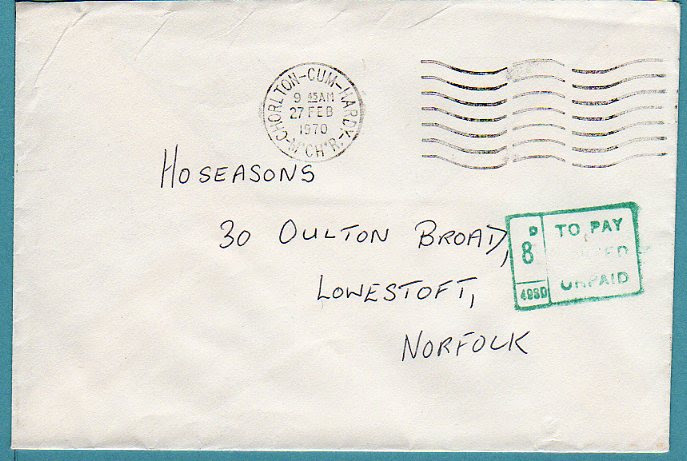 CHORLTON-CUM-HARDY
9 45AM
27 FEB
1970
M'CH'R.
HOSEASONS
30 OULTON BROAD,
LOWESTOFT,
NORFOLK
D
8
TO PAY
UNPAID
498D